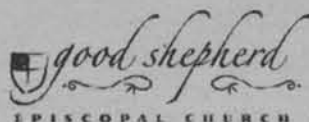 good shepherd
EPISCOPAL CHURCH